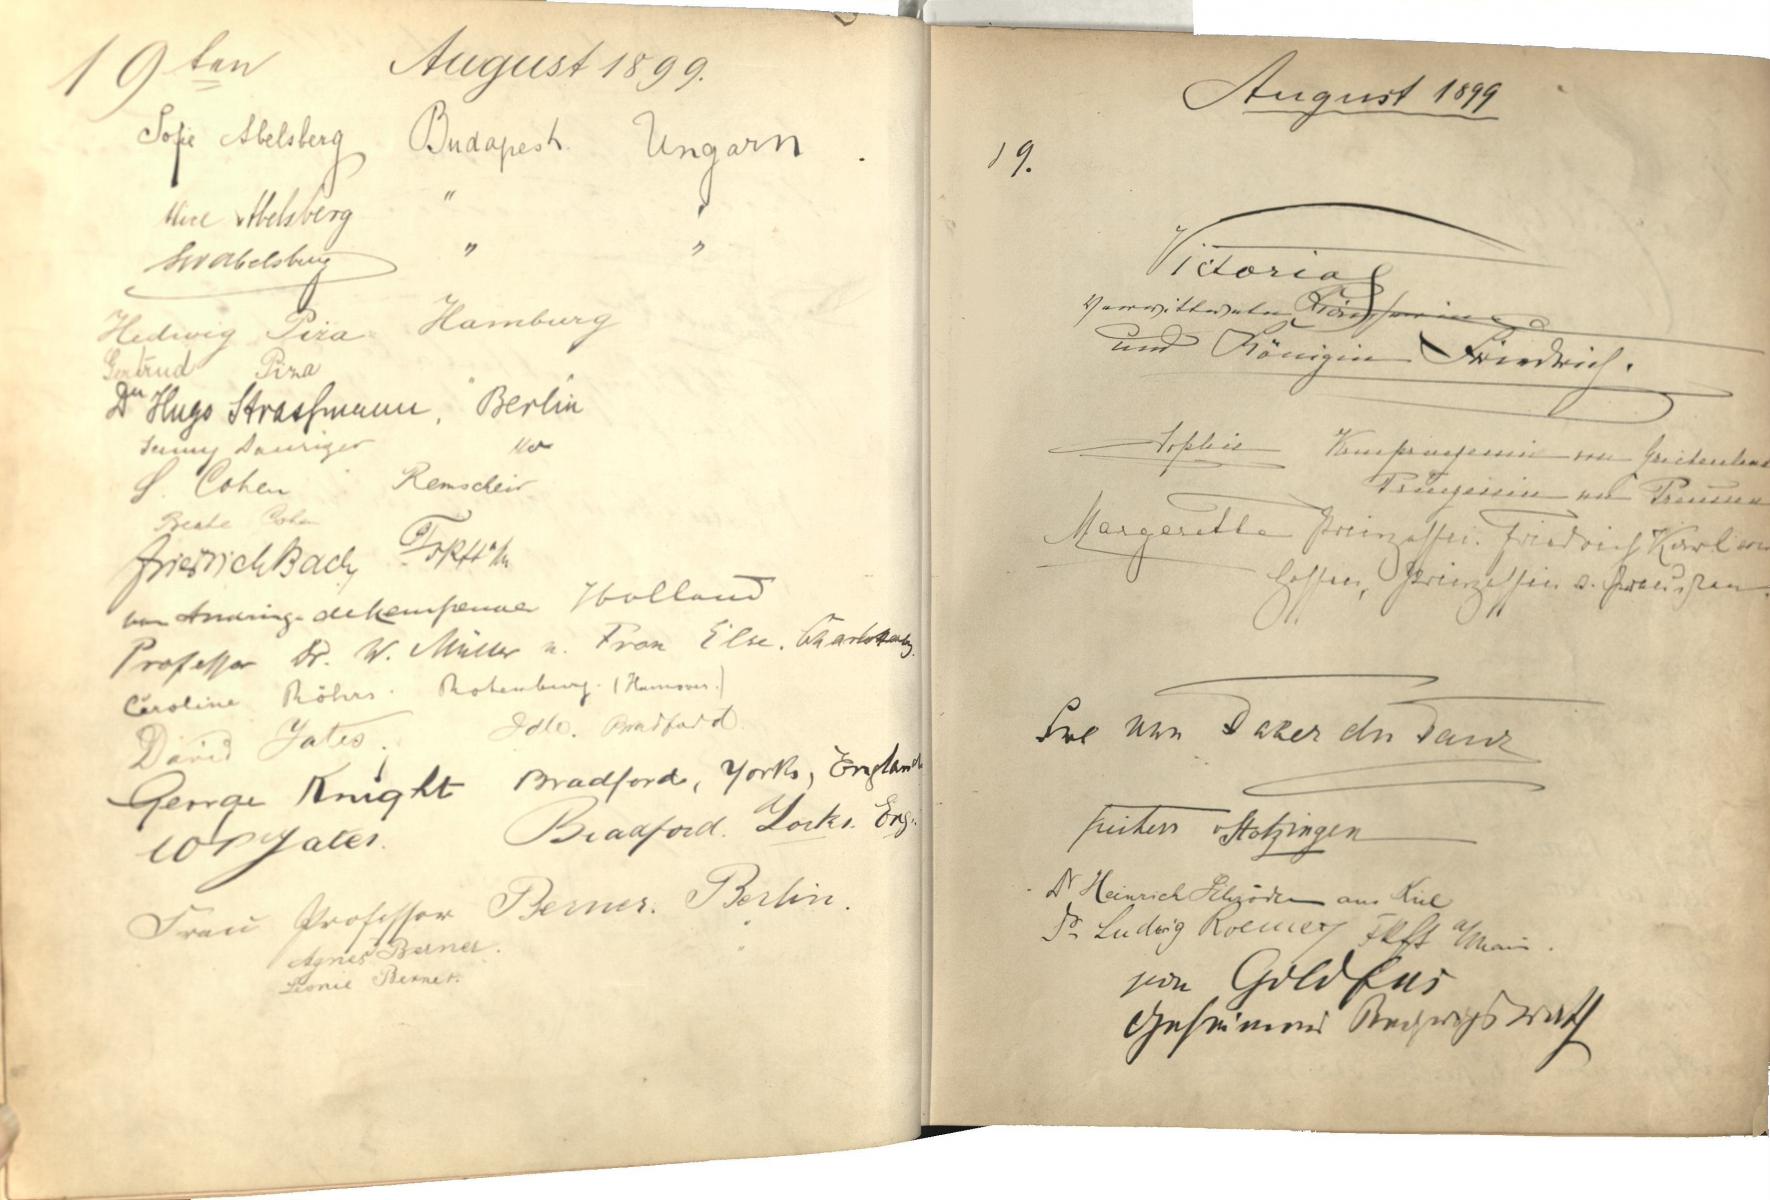 19ten August 1899.
Sofie Abelsberg Budapest. Ungarn.
Abelsberg " "
Abelsberg " "
Hedwig Piza Hamburg
Gertrud Piza
Dr Hugo Strassmann, Berlin
Jenny Danziger
S. Cohen Remscheid
Beate Cohen
Friedrich Bach Frkft a/m
van Andringa de Kempenaer Holland
Professor Dr. W. Müller u. Frau Else. Charlottenbg.
Caroline Röhrs. Rotenburg. (Hannover.)
David Yates. Idle. Bradford.
George Knight Bradford, Yorks, England
W P Yates. Bradford. Yorks. Eng.
Frau Professor Berner. Berlin.
Agnes Berner. "
Leonie Berner. "
August 1899
19.
Victoria
verwittwete Kaiserin
und Königin Friedrich.
Sophie Kronprinzessin von Griechenland
Prinzessin von Preussen
Margarethe Prinzessin Friedrich Karl von
Hessen, Prinzessin v. Preussen.
von
Freiherr v Stotzingen
Dr Heinrich Schröder aus Kiel
Dr Ludwig Roemer Frkft a/Main.
von Goldfus
Geheimer Regierungsrath